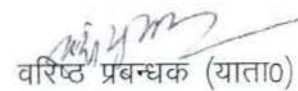 वरिष्ठ प्रबन्धक (याता0)